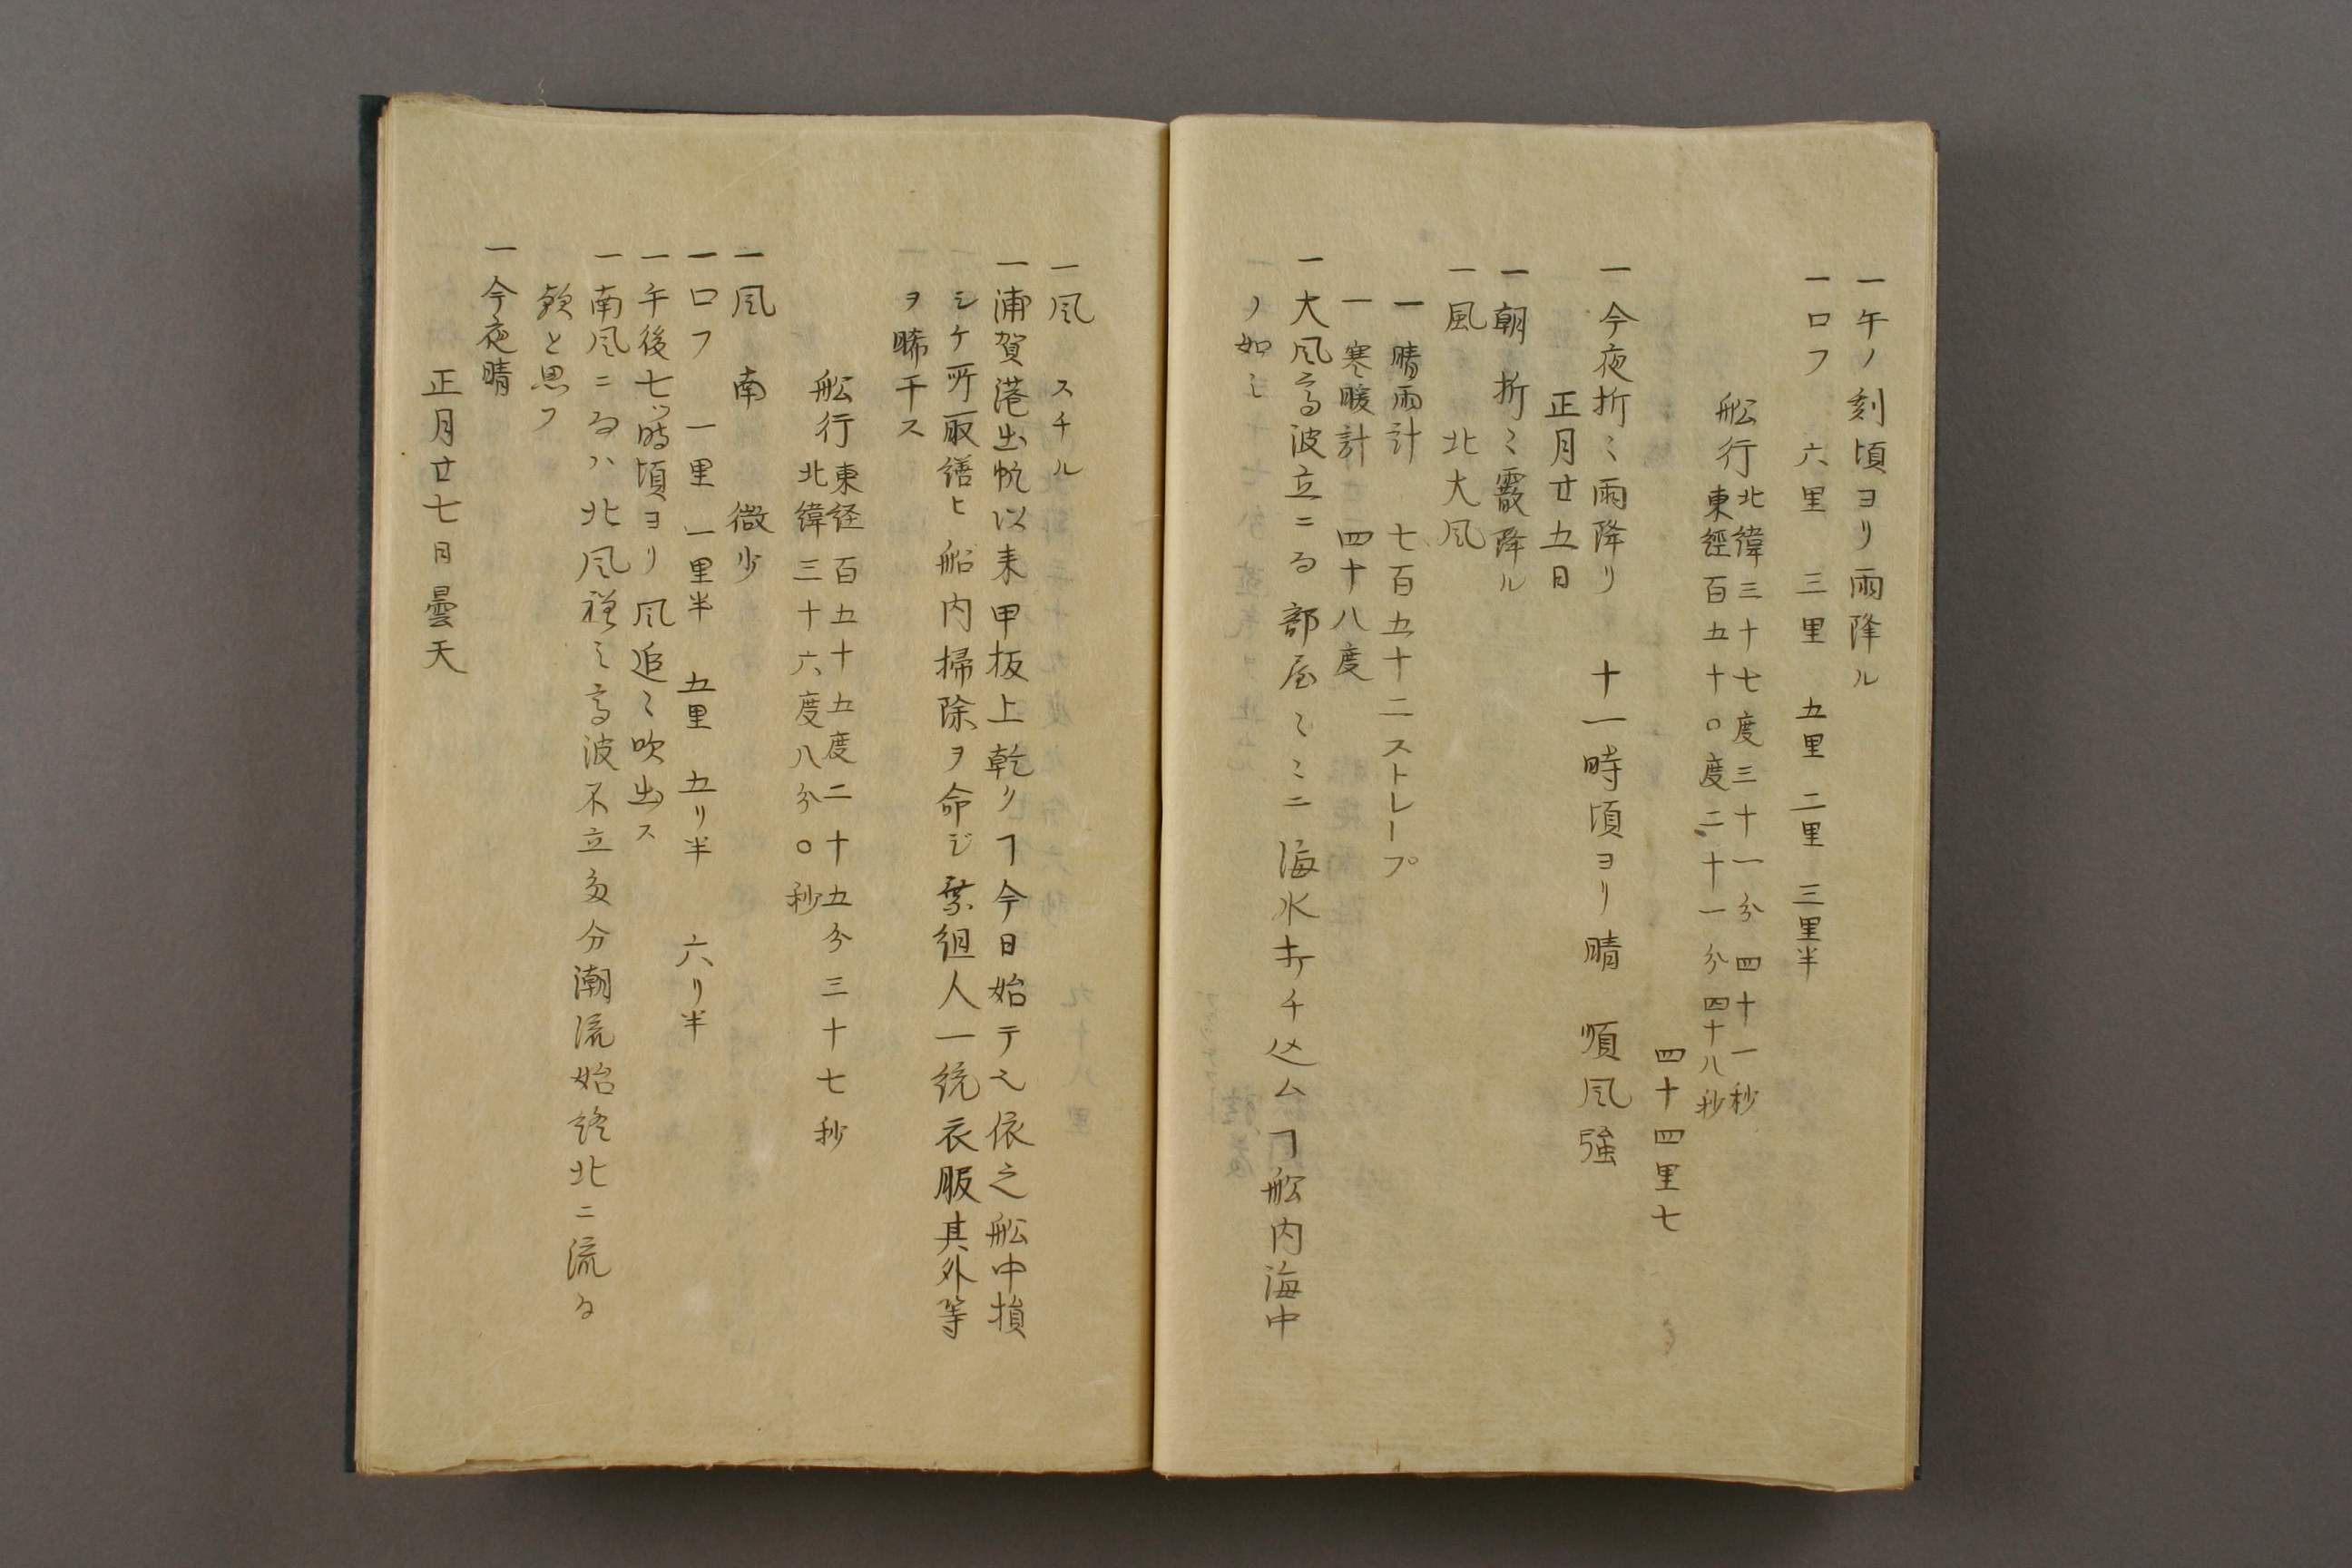 一午ノ刻頃ヨリ雨降ル
一ロフ 六里 三里 五里 二里 三里半
舩行北緯三十七度三十一分四十一秒
東經百五十〇度二十一分四十八秒
四十四里七
一今夜折〻雨降リ 十一時頃ヨリ晴 順風強
正月廿五日
一朝折〻霰降ル
一風 北大風
一晴雨計 七百五十二ストレープ
一寒暖計 四十八度
一大風高波立ニる部屋〻〻ニ海水打チ込ムヿ舩内海中
ノ如シ
一風 スチル
一浦賀港出帆以来甲板上乾クヿ今日始テ也依之舩中損
シケ所取繕ヒ船内掃除ヲ命ジ乗組人一統衣服其外等
ヲ晞干ス
舩行東経百五十五度二十五分三十七秒
北緯三十六度八分〇秒
一風 南 微少
一ロフ 一里 一里半 五里 五リ半 六リ半
一午後七ツ時頃ヨリ風追〻吹出ス
一南風ニ而ハ北風程ニ高波不立多分潮流始終北ニ流る
歟と思フ
一今夜晴
正月廿七日曇天